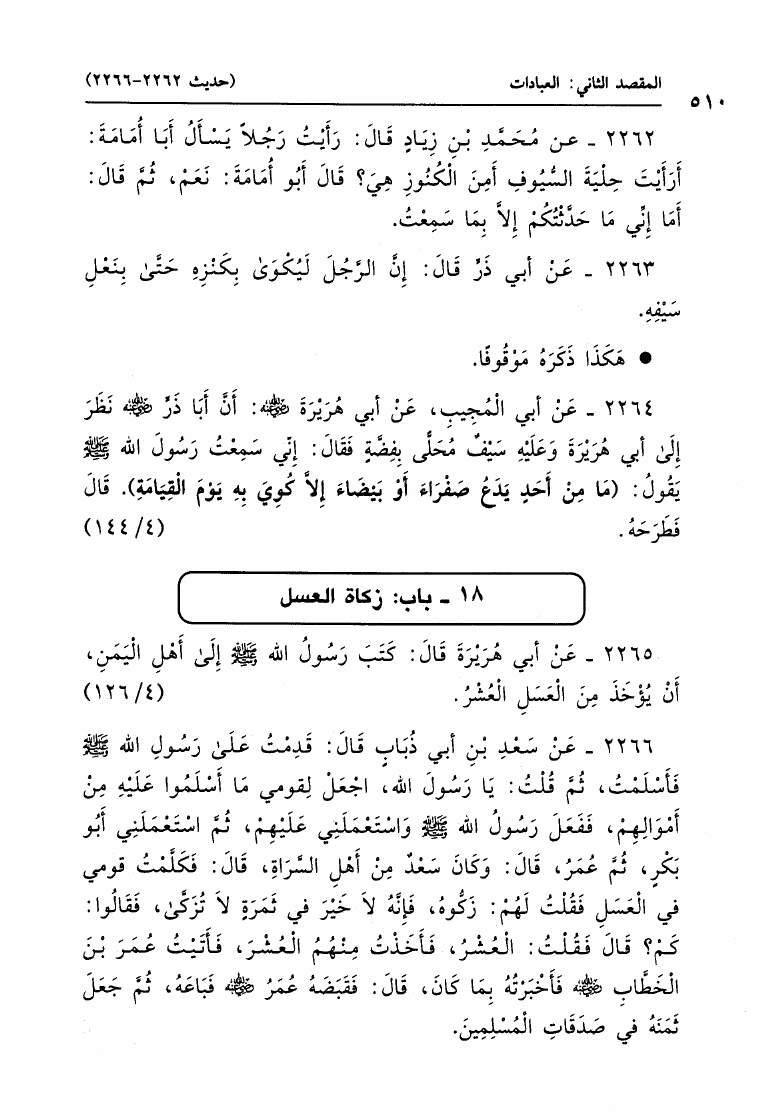 المقصد الثاني: العبادات (حديث ٢٢٦٢-٢٢٦٦)
٥١٠
٢٢٦٢ ـ عن مُحَمَّدِ بْنِ زِيَادٍ قَالَ: رَأَيْتُ رَجُلاً يَسْأَلُ أَبَا أُمَامَةَ:
أَرَأَيْتَ حِلْيَةَ السُّيُوفِ أَمِنَ الْكُنُوزِ هِيَ؟ قَالَ أَبُو أُمَامَةَ: نَعَمْ، ثُمَّ قَالَ:
أَمَا إِنِّي مَا حَدَّثْتُكُمْ إِلاَّ بِمَا سَمِعْتُ.
٢٢٦٣ ـ عَنْ أبي ذَرٍّ قَالَ: إِنَّ الرَّجُلَ لَيُكْوَىٰ بِكَنْزِهِ حَتَّىٰ بِنَعْلِ
سَيْفِهِ.
● هَكَذَا ذَكَرَهُ مَوْقُوفًا.
٢٢٦٤ ـ عَنْ أبي الْمُجِيبِ، عَنْ أبي هُرَيْرَةَ ﵁: أَنَّ أَبَا ذَرٍّ ﵁ نَظَرَ
إِلَىٰ أبي هُرَيْرَةَ وَعَلَيْهِ سَيْفٌ مُحَلًّى بِفِضَّةٍ فَقَالَ: إِنِّي سَمِعْتُ رَسُولَ الله ﷺ
يَقُولُ: (مَا مِنْ أَحَدٍ يَدَعُ صَفْرَاءَ أَوْ بَيْضَاءَ إِلاَّ كُوِيَ بِهِ يَوْمَ الْقِيَامَةِ). قَالَ
فَطَرَحَهُ. (٤/ ١٤٤)
١٨ ـ باب: زكاة العسل
٢٢٦٥ ـ عَنْ أبي هُرَيْرَةَ قَالَ: كَتَبَ رَسُولُ الله ﷺ إِلَىٰ أَهْلِ الْيَمَنِ،
أَنْ يُؤْخَذَ مِنَ الْعَسَلِ الْعُشْرُ. (٤/ ١٢٦)
٢٢٦٦ ـ عَنْ سَعْدِ بْنِ أبي ذُبَابٍ قَالَ: قَدِمْتُ عَلَىٰ رَسُولِ الله ﷺ
فَأَسْلَمْتُ، ثُمَّ قُلْتُ: يَا رَسُولَ الله، اجْعَلْ لِقومي مَا أَسْلَمُوا عَلَيْهِ مِنْ
أَمْوَالِهِمْ، فَفَعَلَ رَسُولُ الله ﷺ وَاسْتَعْمَلَنِي عَلَيْهِمْ، ثُمَّ اسْتَعْمَلَنِي أَبُو
بَكْرٍ، ثُمَّ عُمَرُ، قَالَ: وَكَانَ سَعْدٌ مِنْ أَهْلِ السَّرَاةِ، قَالَ: فَكَلَّمْتُ قومي
في الْعَسَلِ فَقُلْتُ لَهُمْ: زَكُّوهُ، فَإِنَّهُ لاَ خَيْرَ في ثَمَرَةٍ لاَ تُزَكَّىٰ، فَقَالُوا:
كَمْ؟ قَالَ فَقُلْتُ: الْعُشْرُ، فَأَخَذْتُ مِنْهُمُ الْعُشْرَ، فَأَتَيْتُ عُمَرَ بْنَ
الْخَطَّابِ ﵁ فَأَخْبَرْتُهُ بِمَا كَانَ، قَالَ: فَقَبَضَهُ عُمَرُ ﵁ فَبَاعَهُ، ثُمَّ جَعَلَ
ثَمَنَهُ في صَدَقَاتِ الْمُسْلِمِينَ.